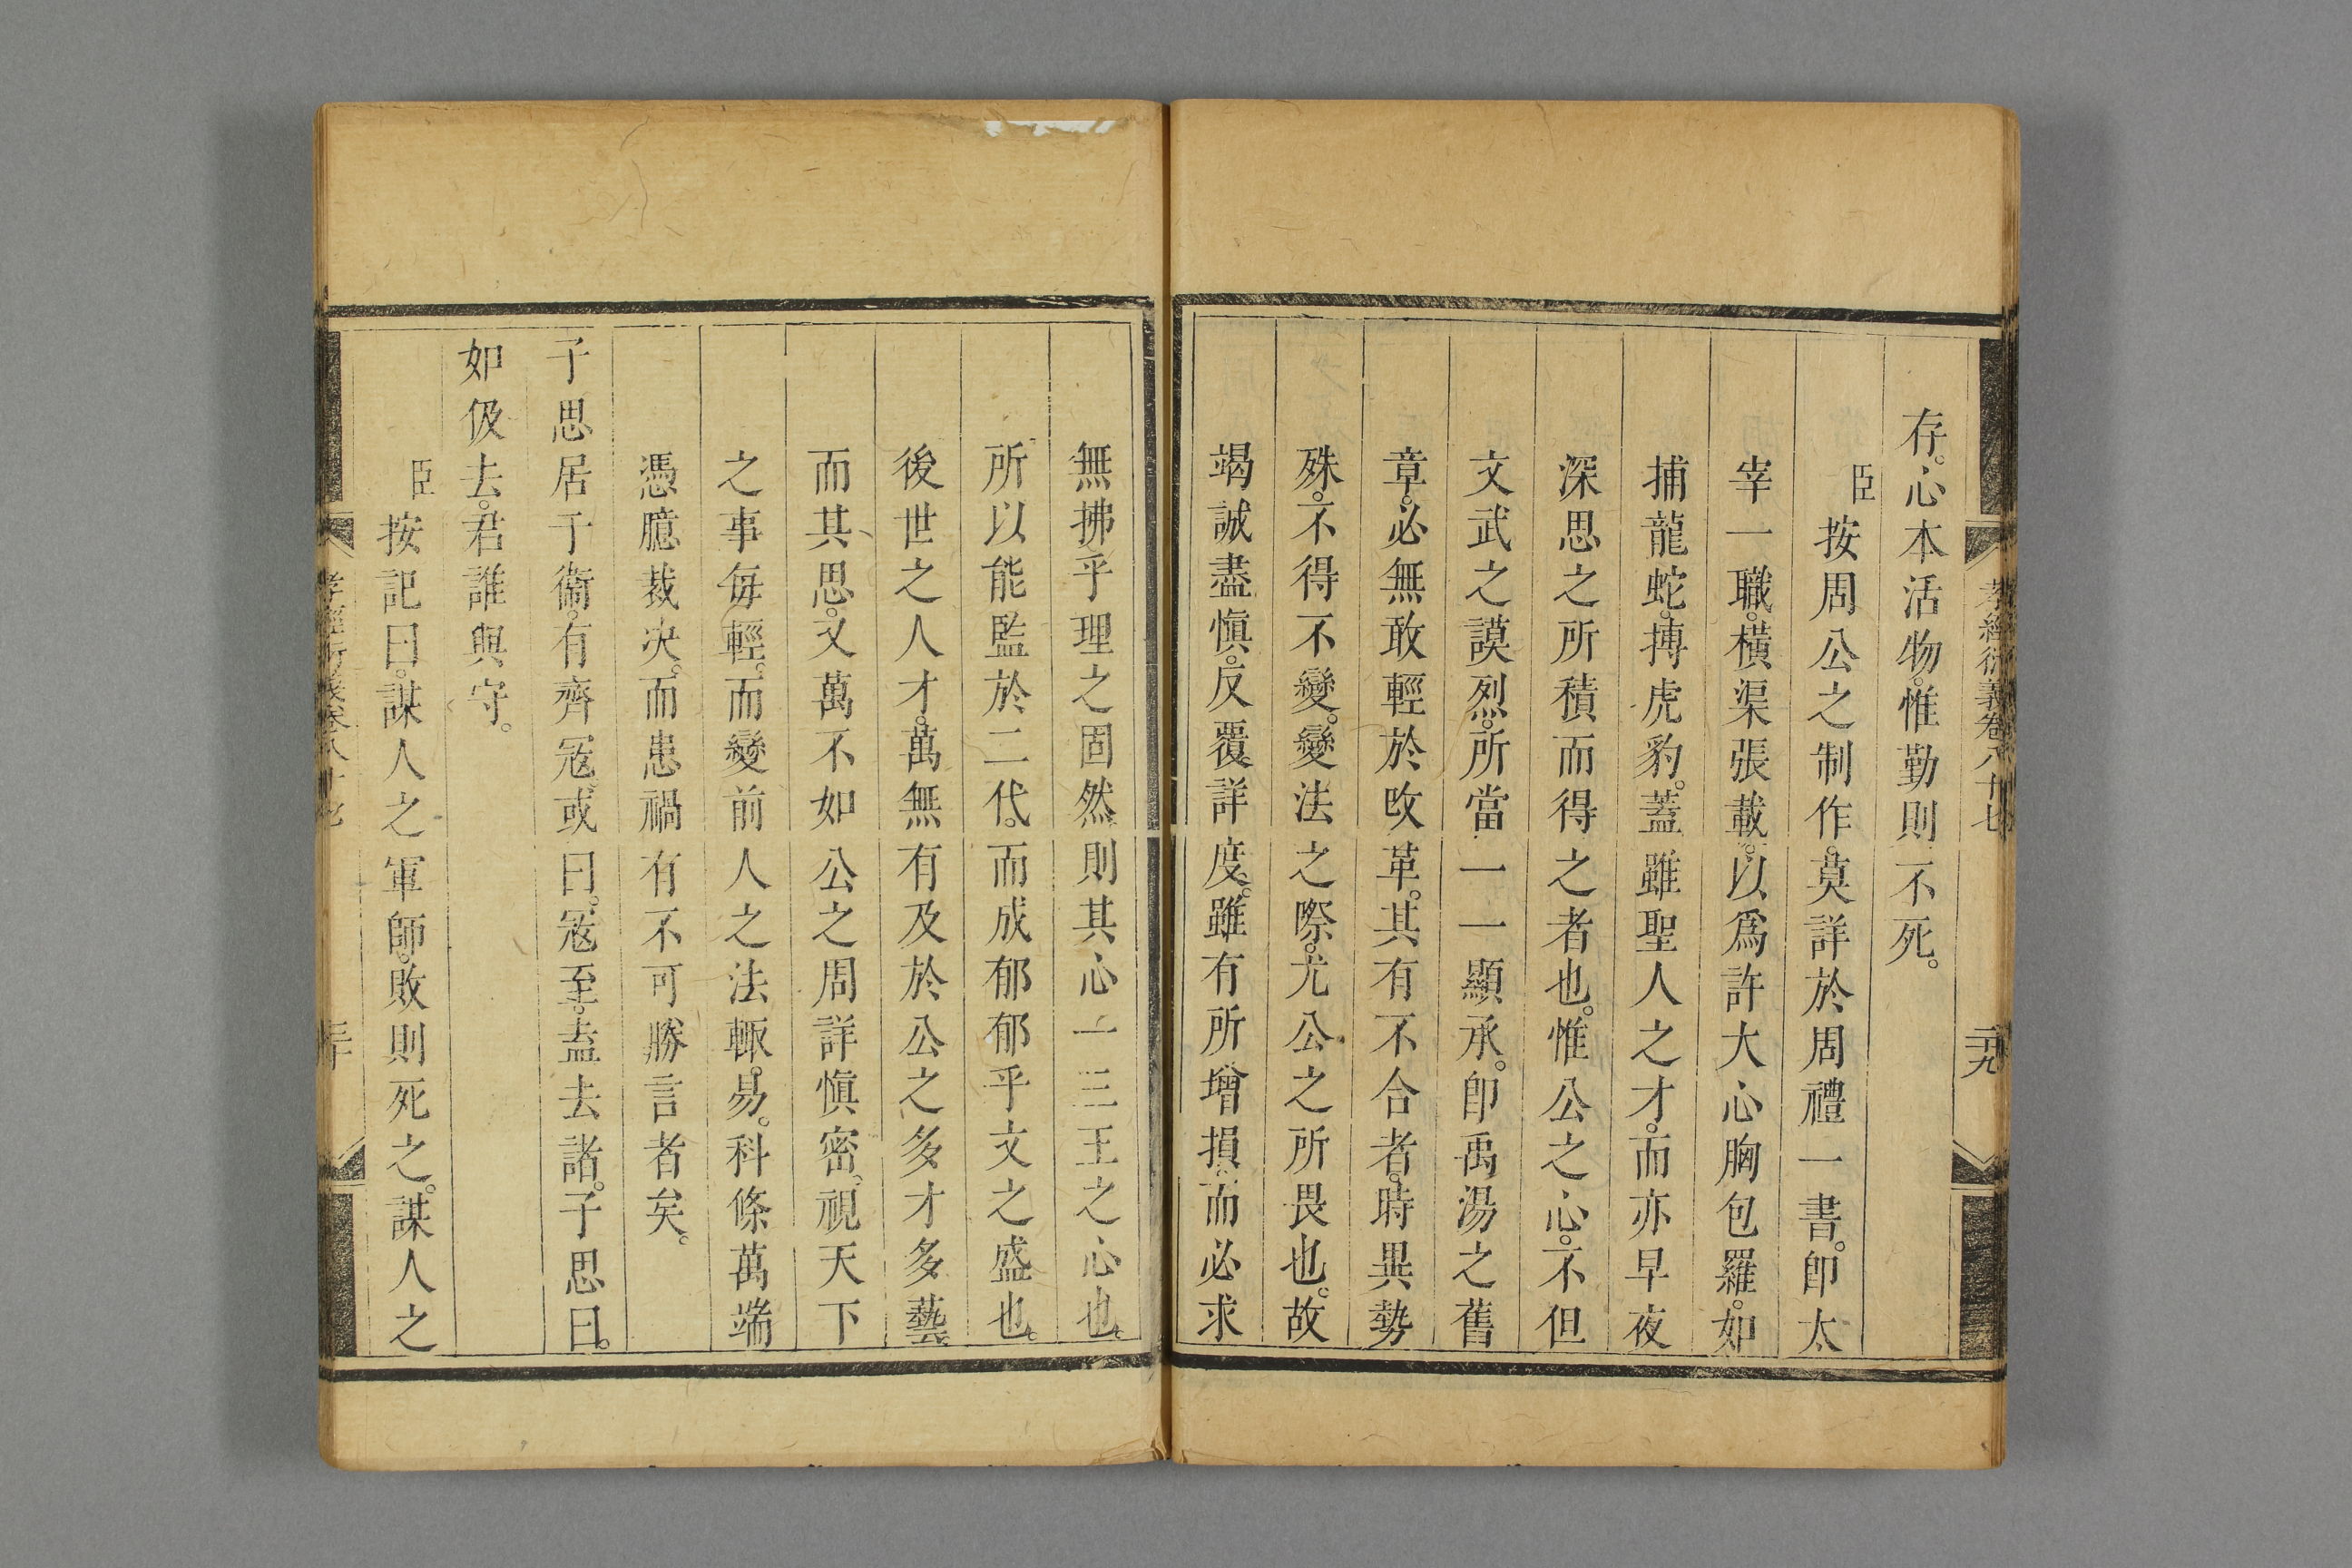 孝經衍義卷八十七
二十九
存。心本活物。惟勤則不死。
臣按周公之制作。莫詳於周禮一書。卽太
宰一職。橫渠張載。以爲許大心胸包羅。如
捕龍蛇。搏虎豹。蓋雖聖人之才。而亦早夜
深思之所積而得之者也。惟公之心。不但
文武之謨烈。所當一一顯承。卽禹湯之舊
章。必無敢輕於攺革。其有不合者。時異勢
殊。不得不變。變法之際。尤公之所畏也。故
竭誠盡愼。反覆詳度。雖有所增損。而必求
無拂乎理之固然。則其心一三王之心也。
所以能監於二代。而成郁郁乎文之盛也。
後世之人才。萬無有及於公之多才多藝。
而其思。又萬不如公之周詳愼密。視天下
之事每輕。而變前人之法輒易。科條萬端
憑臆裁决。而患禍有不可勝言者矣。
子思居于衞。有齊冦。或曰。冦至。盍去諸。子思曰。
如伋去。君誰與守。
臣按記曰。謀人之軍師。敗則死之。謀人之
孝經衍義卷八十七
三十